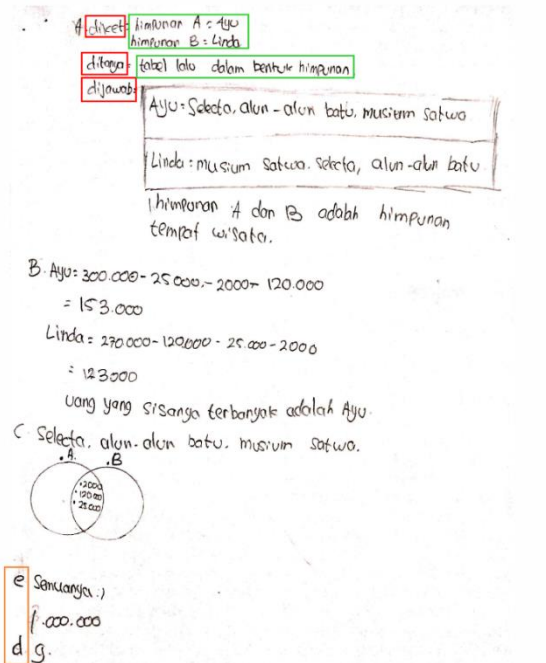 A. diket: himpunan A : Ayu
himpunan B : Linda
ditanya: tabel lalu dalam bentuk himpunan
dijawab:
Ayu : Selecta, alun - alun batu, musium satwa
Linda : musium satwa. selecta, alun-alun batu
himpunan A dan B adalah himpunan
tempat wisata.
B. Ayu : 300.000 - 25000, - 2000 - 120.000
= 153.000
Linda = 270.000 - 120.000 - 25.000 - 2000
= 123000
Uang yang sisanya terbanyak adalah Ayu.
C Selecta, alun-alun batu. musium satwa.
.A. .B
.2000
.120000
.25.000
e Semuanya :)
1.000.000
d g.